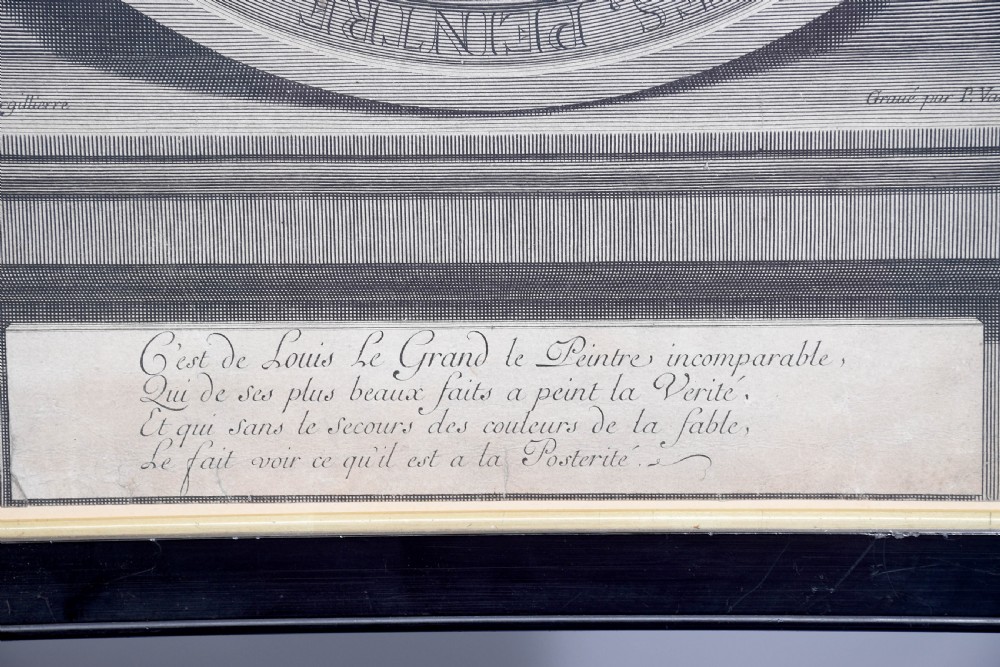 S. PEINTRE
Graué par P. Va
C'est de Louis Le Grand le Peintre incomparable,
Qui de ses plus beaux faits a peint la Verité.
Et qui sans le secours des couleurs de la fable,
Le fait voir ce qu'il est a la Posterité.